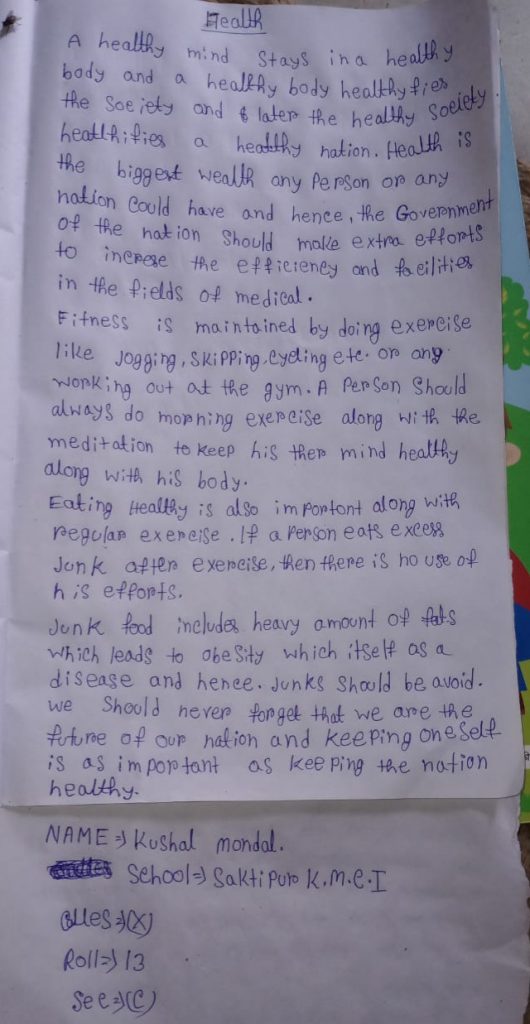 Health
A healthy mind stays in a healthy
body and a healthy body healthyfies
the soeiety and later the healthy society
healthifies a healthy nation. Health is
the biggest wealth any person or any
nation could have and hence, the Government
of the nation should make extra efforts
to increse the efficiency and facilities
in the fields of medical.
Fitness is maintained by doing exercise
like Jogging, Skipping. Cycling etc. or any
working out at the gym. A Person Should
always do morning exercise along with the
meditation to keep his then mind healthy
along with his body.
Eating Healthy is also important along with
regular exercise. If a person eats excess
Junk after exercise, then there is no use of
his efforts.
Junk food includes heavy amount of fats
which leads to obesity which itself as a
disease and hence. Junks should be avoid.
we should never forget that we are the
future of our nation and keeping oneself
is as important as keeping the nation
healthy.
NAME => Kushal mondal.
School => Saktipuro K.m.e.I
Clles => (X)
Roll => 13
See => (C)